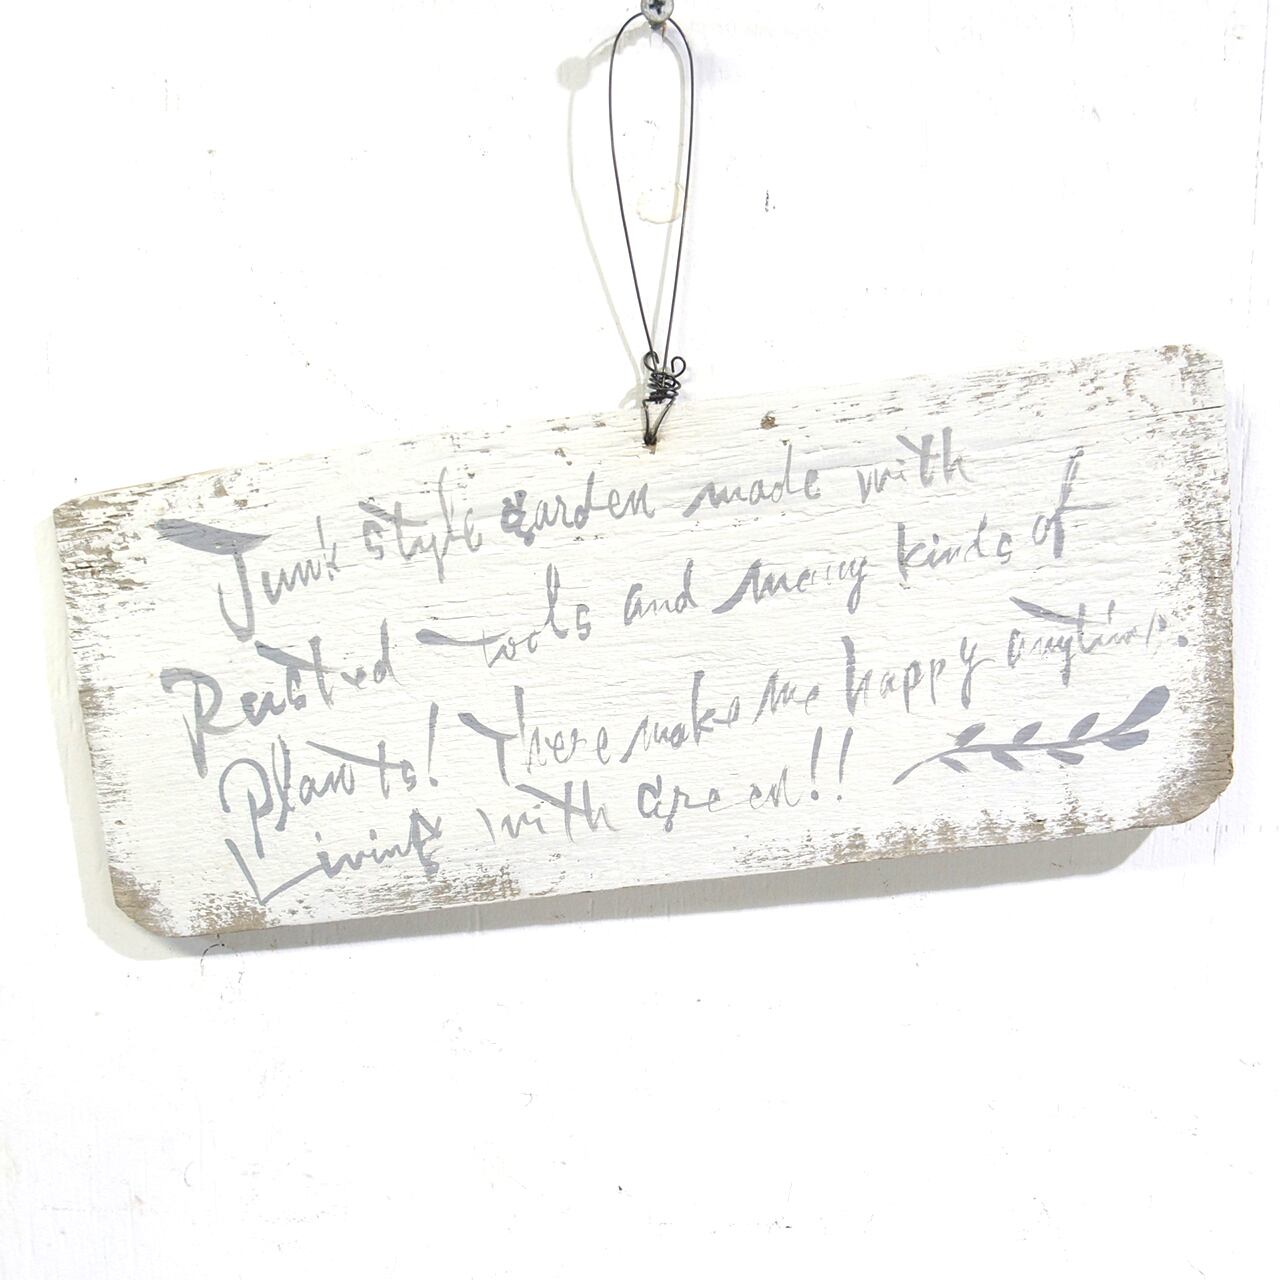 Junk style garden made with
Rusted tools and many kinds of
Plants! These make me happy anytime.
Living with Green!!